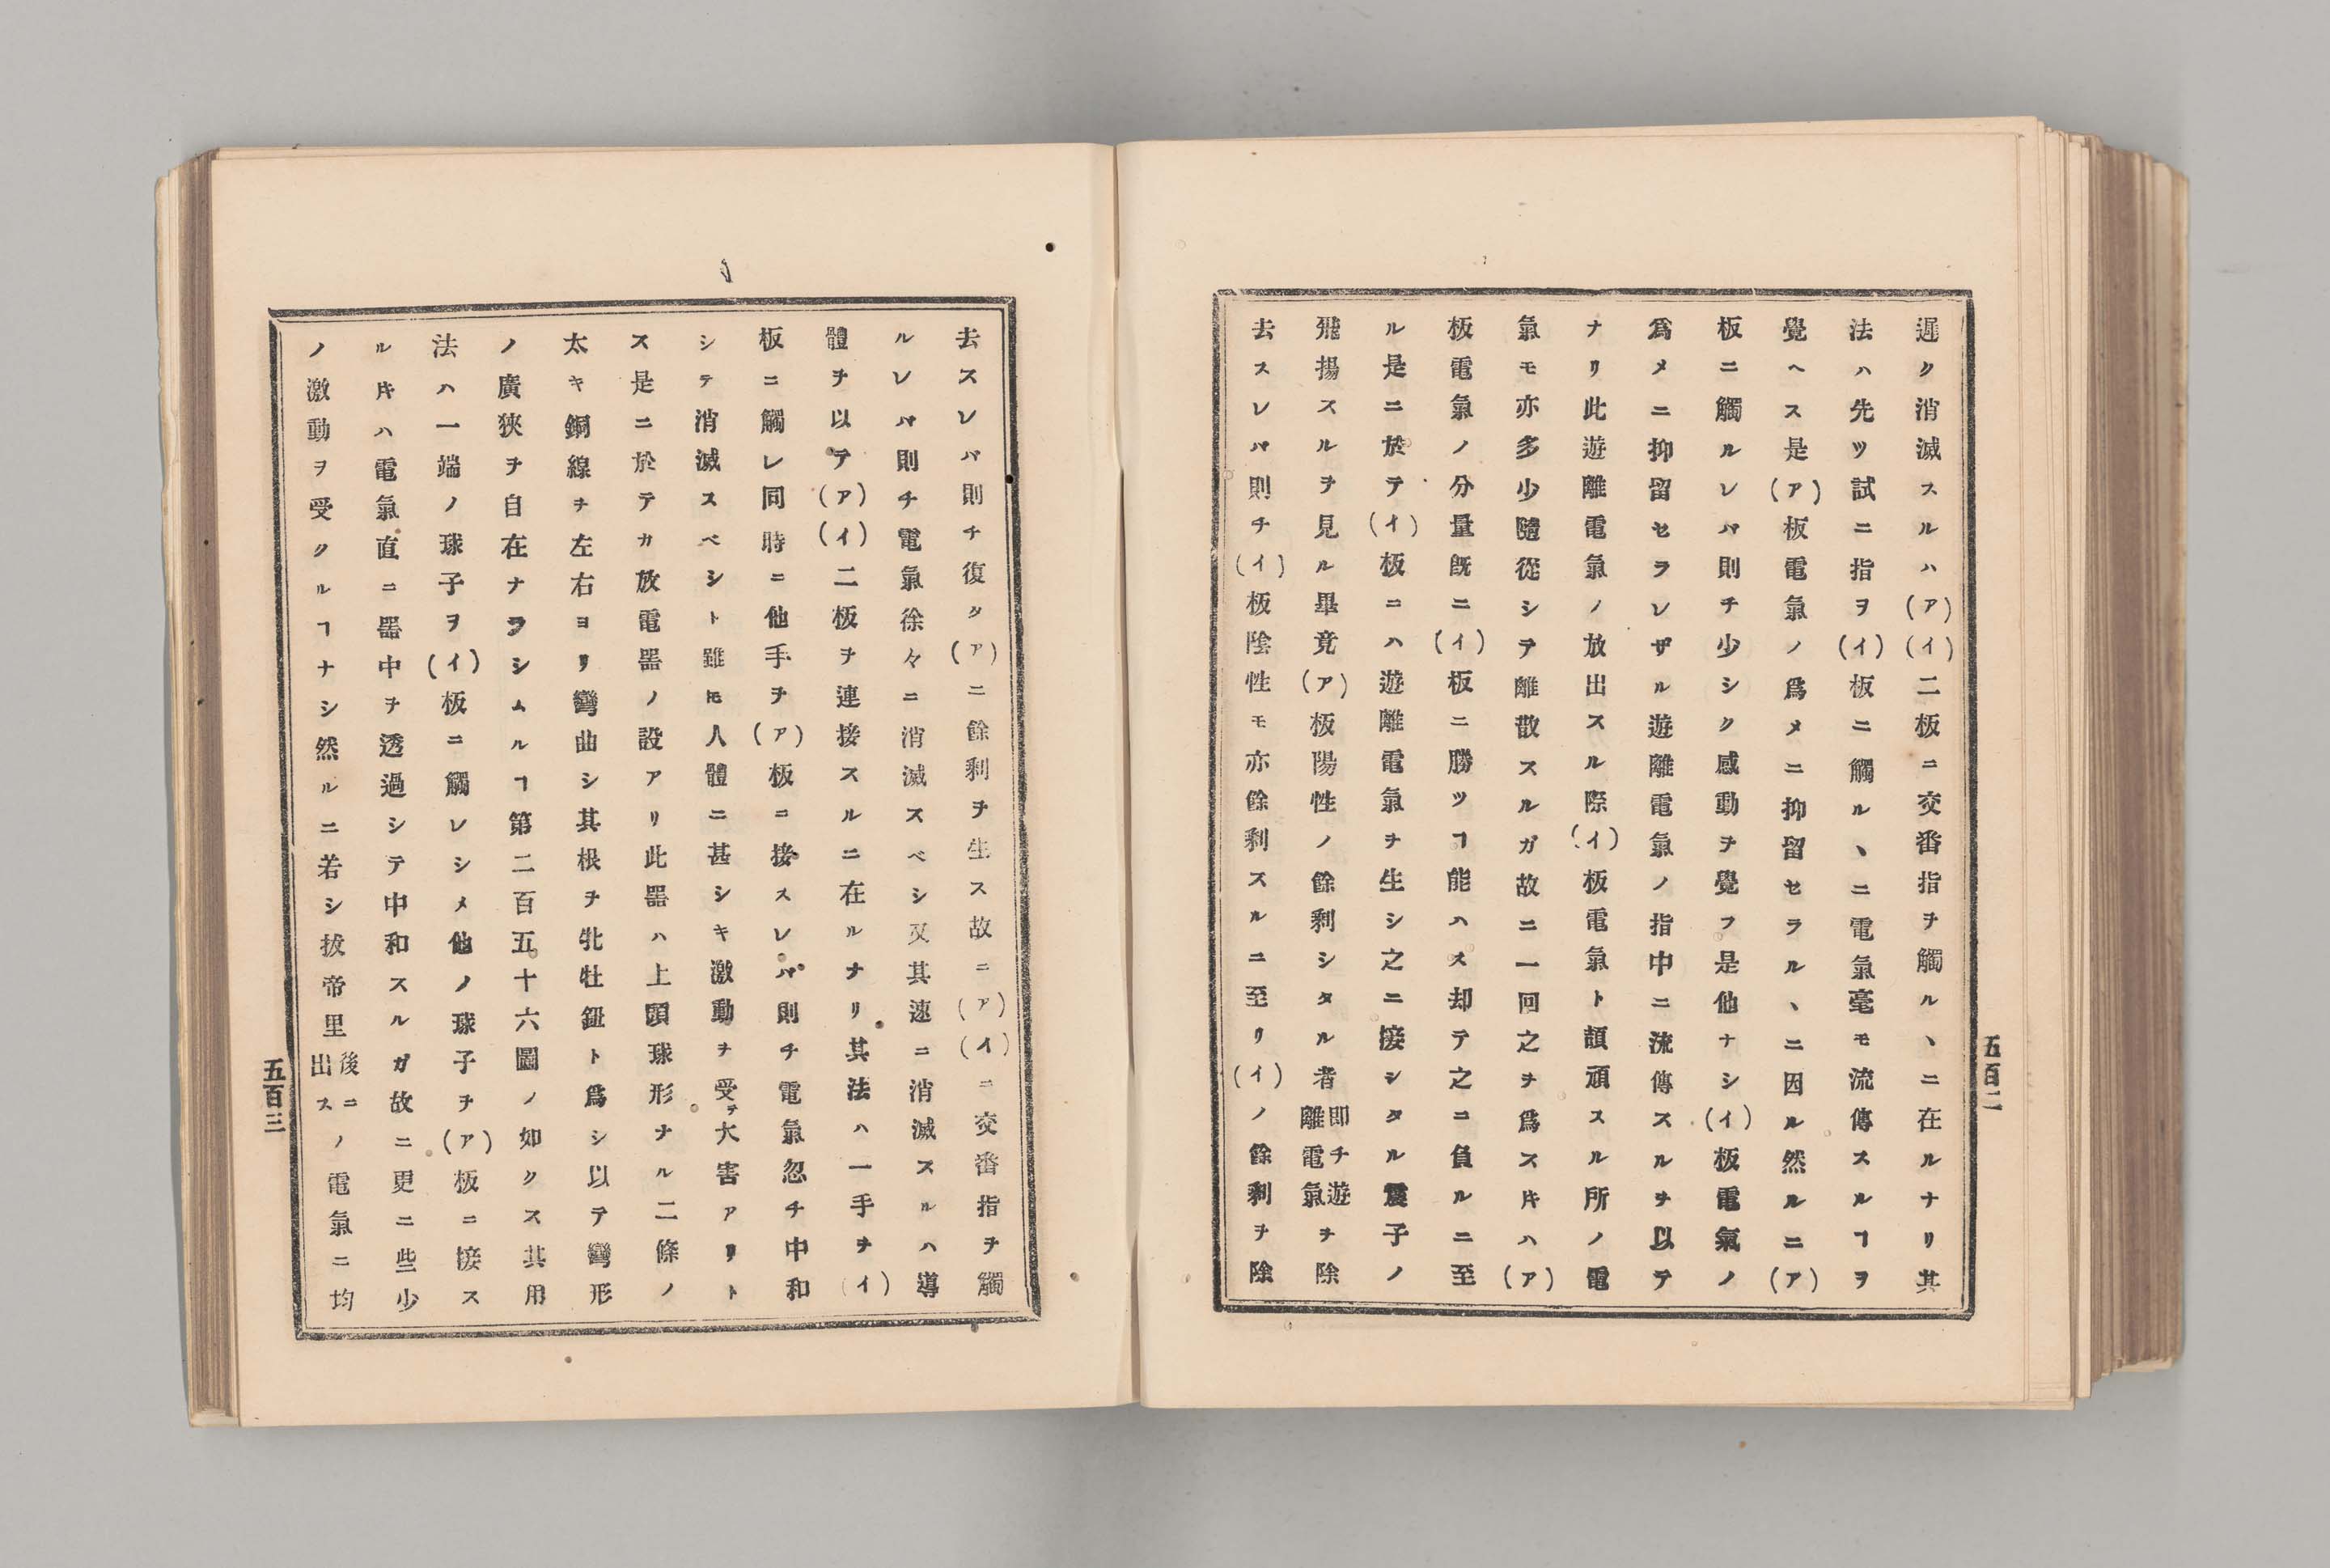 遲ク消滅スルハ(ア)(イ)二板ニ交番指ヲ觸ルヽニ在ルナリ其
法ハ先ツ試ニ指ヲ(イ)板ニ觸ルヽニ電氣毫モ流傳スルヿヲ
覺ヘス是(ア)板電氣ノ爲メニ抑留セラルヽニ因ル然ルニ(ア)
板ニ觸ルレバ則チ少シク感動ヲ覺フ是他ナシ(イ)板電氣ノ
爲メニ抑留セラレザル遊離電氣ノ指中ニ流傳スルヲ以テ
ナリ此遊離電氣ノ放出スル際(イ)板電氣ト頡頏スル所ノ電
氣モ亦多少隨從シテ離散スルガ故ニ一回之ヲ爲ス片ハ(ア)
板電氣ノ分量既ニ(イ)板ニ勝ツヿ能ハス却テ之ニ負ルニ至
ル是ニ於テ(イ)板ニハ遊離電氣ヲ生シ之ニ接シタル震子ノ
飛揚スルヲ見ル畢竟(ア)板陽性ノ餘剩シタル者即チ遊離電氣ヲ除
去スレバ則チ(イ)板陰性モ亦餘剩スルニ至リ(イ)ノ餘剩ヲ除
五百二
去スレバ則チ復タ(ア)ニ餘剩ヲ生ス故ニ(ア)(イ)ニ交番指ヲ觸
ルレバ則チ電氣徐々ニ消滅スベシ又其速ニ消滅スルハ導
體ヲ以テ(ア)(イ)二板ヲ連接スルニ在ルナリ其法ハ一手ヲ(イ)
板ニ觸レ同時ニ他手ヲ(ア)板ニ接スレバ則チ電氣忽チ中和
シテ消滅スベシト雖モ人體ニ甚シキ激動ヲ受テ大害アリト
ス是ニ於テカ放電器ノ設アリ此器ハ上頭球形ナル二條ノ
太キ銅線ヲ左右ヨリ彎曲シ其根ヲ牝牡鈕ト爲シ以テ彎形
ノ廣狹ヲ自在ナラシムルヿ第二百五十六圖ノ如クス其用
法ハ一端ノ球子ヲ(イ)板ニ觸レシメ他ノ球子ヲ(ア)板ニ接ス
ル片ハ電氣直ニ器中ヲ透過シテ中和スルガ故ニ更ニ些少
ノ激動ヲ受クルヿナシ然ルニ若シ拔帝里後ニ出スノ電氣ニ均
五百三